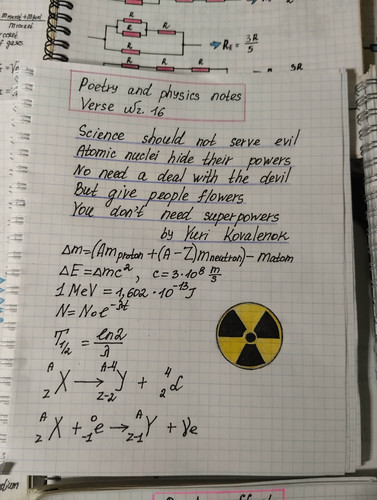 R
R
R
R
R_E = 3R/5
R R R
3R
of gases
Poetry and physics notes
Verse Nr. 16
Science should not serve evil
Atomic nuclei hide their powers
No need a deal with the devil
But give people flowers
You don't need superpowers
by Yuri Kovalenok
Δm=(Am_proton+(A-Z)m_neutron)-m_atom
ΔE=Δmc², c=3·10⁸ m/s
1 MeV=1,602·10⁻¹³J
N=N₀e^-λt
T_1/2 = ln2/λ
^A_Z X → ^A-4_Z-2 Y + ^4_2 α
^A_Z X + ^0_-1 e → ^A_Z-1 Y + νe